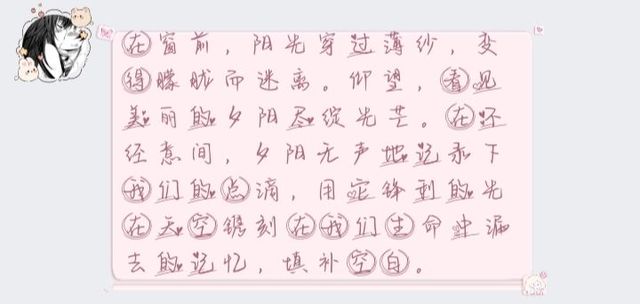 在窗前，阳光穿过薄纱，变
得朦胧而迷离。仰望，看见
美丽的夕阳尽绽光芒。在不
经意间，夕阳无声地记录下
我们的点滴，用它锋利的光
在天空镌刻在我们生命中漏
去的记忆，填补空白。